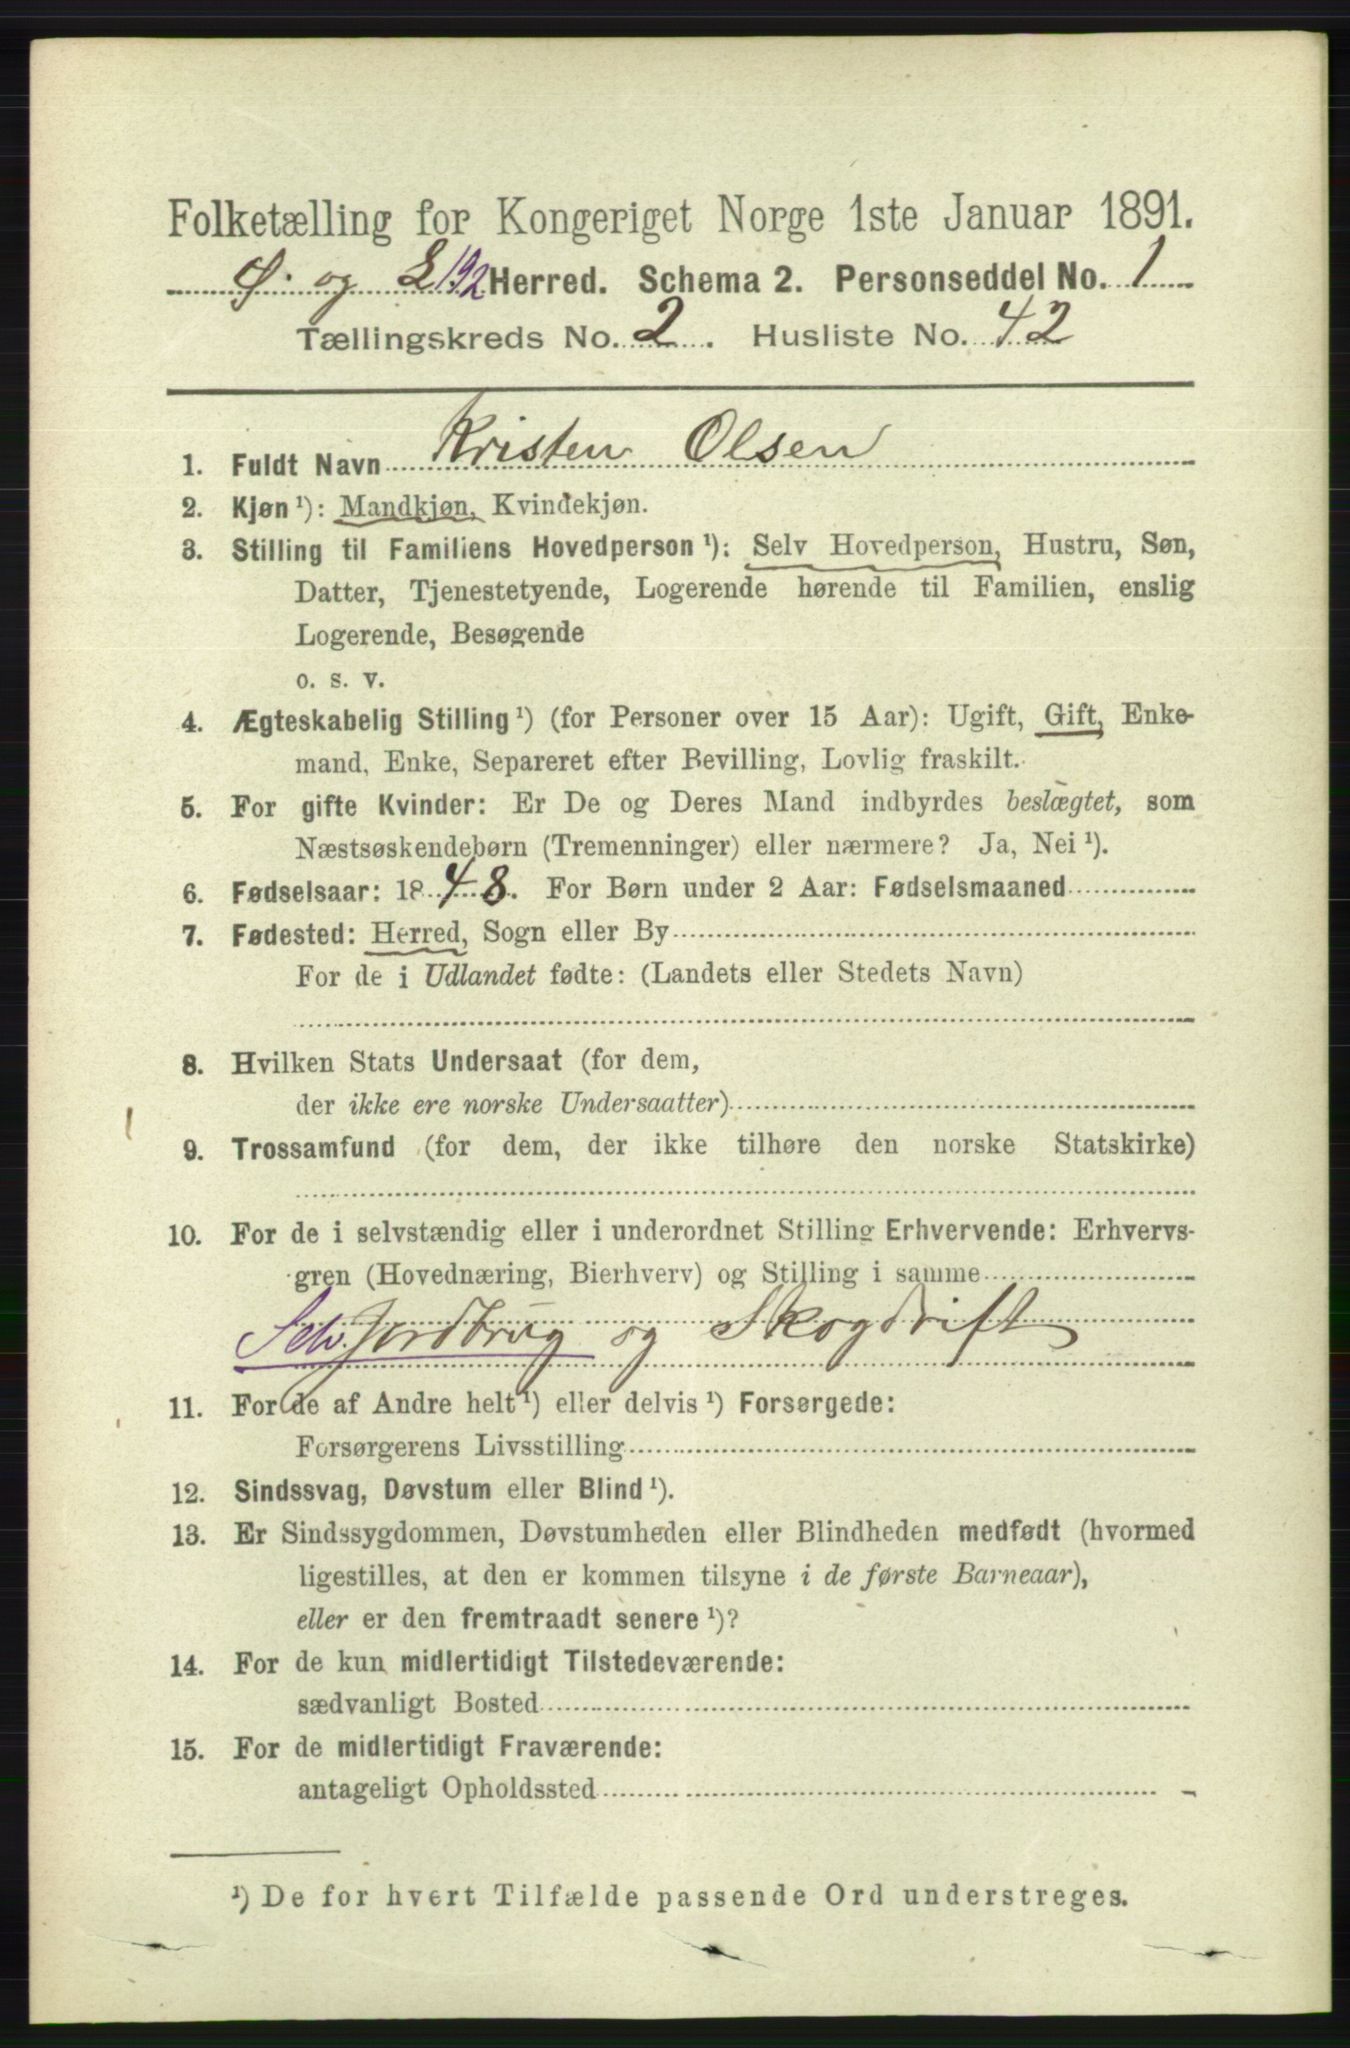 Folketælling for Kongeriget Norge 1ste Januar 1891.
Ø. og L 192 Herred. Schema 2. Personseddel No. 1
Tællingskreds No. 2. Husliste No. 42
1. Fuldt Navn Kristen Olsen
2. Kjøn ¹): Mandkjøn, Kvindekjøn.
3. Stilling til Familiens Hovedperson ¹): Selv Hovedperson, Hustru, Søn,
Datter, Tjenestetyende, Logerende hørende til Familien, enslig
Logerende, Besøgende
o. s. v.
4. Ægteskabelig Stilling ¹) (for Personer over 15 Aar): Ugift, Gift, Enke-
mand, Enke, Separeret efter Bevilling, Lovlig fraskilt.
5. For gifte Kvinder: Er De og Deres Mand indbyrdes beslægtet, som
Næstsøskendebørn (Tremenninger) eller nærmere? Ja, Nei ¹).
6. Fødselsaar: 1848. For Børn under 2 Aar: Fødselsmaaned
7. Fødested: Herred, Sogn eller By
For de i Udlandet fødte: (Landets eller Stedets Navn)
8. Hvilken Stats Undersaat (for dem,
der ikke ere norske Undersaatter)
9. Trossamfund (for dem, der ikke tilhøre den norske Statskirke)
10. For de i selvstændig eller i underordnet Stilling Erhvervende: Erhvervs-
gren (Hovednæring, Bierhverv) og Stilling i samme
Selv. Jordbrug og Skogdrift
11. For de af Andre helt ¹) eller delvis ¹) Forsørgede:
Forsørgerens Livsstilling
12. Sindssvag, Døvstum eller Blind ¹).
13. Er Sindssygdommen, Døvstumheden eller Blindheden medfødt (hvormed
ligestilles, at den er kommen tilsyne i de første Barneaar),
eller er den fremtraadt senere ¹)?
14. For de kun midlertidigt Tilstedeværende:
sædvanligt Bosted
15. For de midlertidigt Fraværende:
antageligt Opholdssted
¹) De for hvert Tilfælde passende Ord understreges.